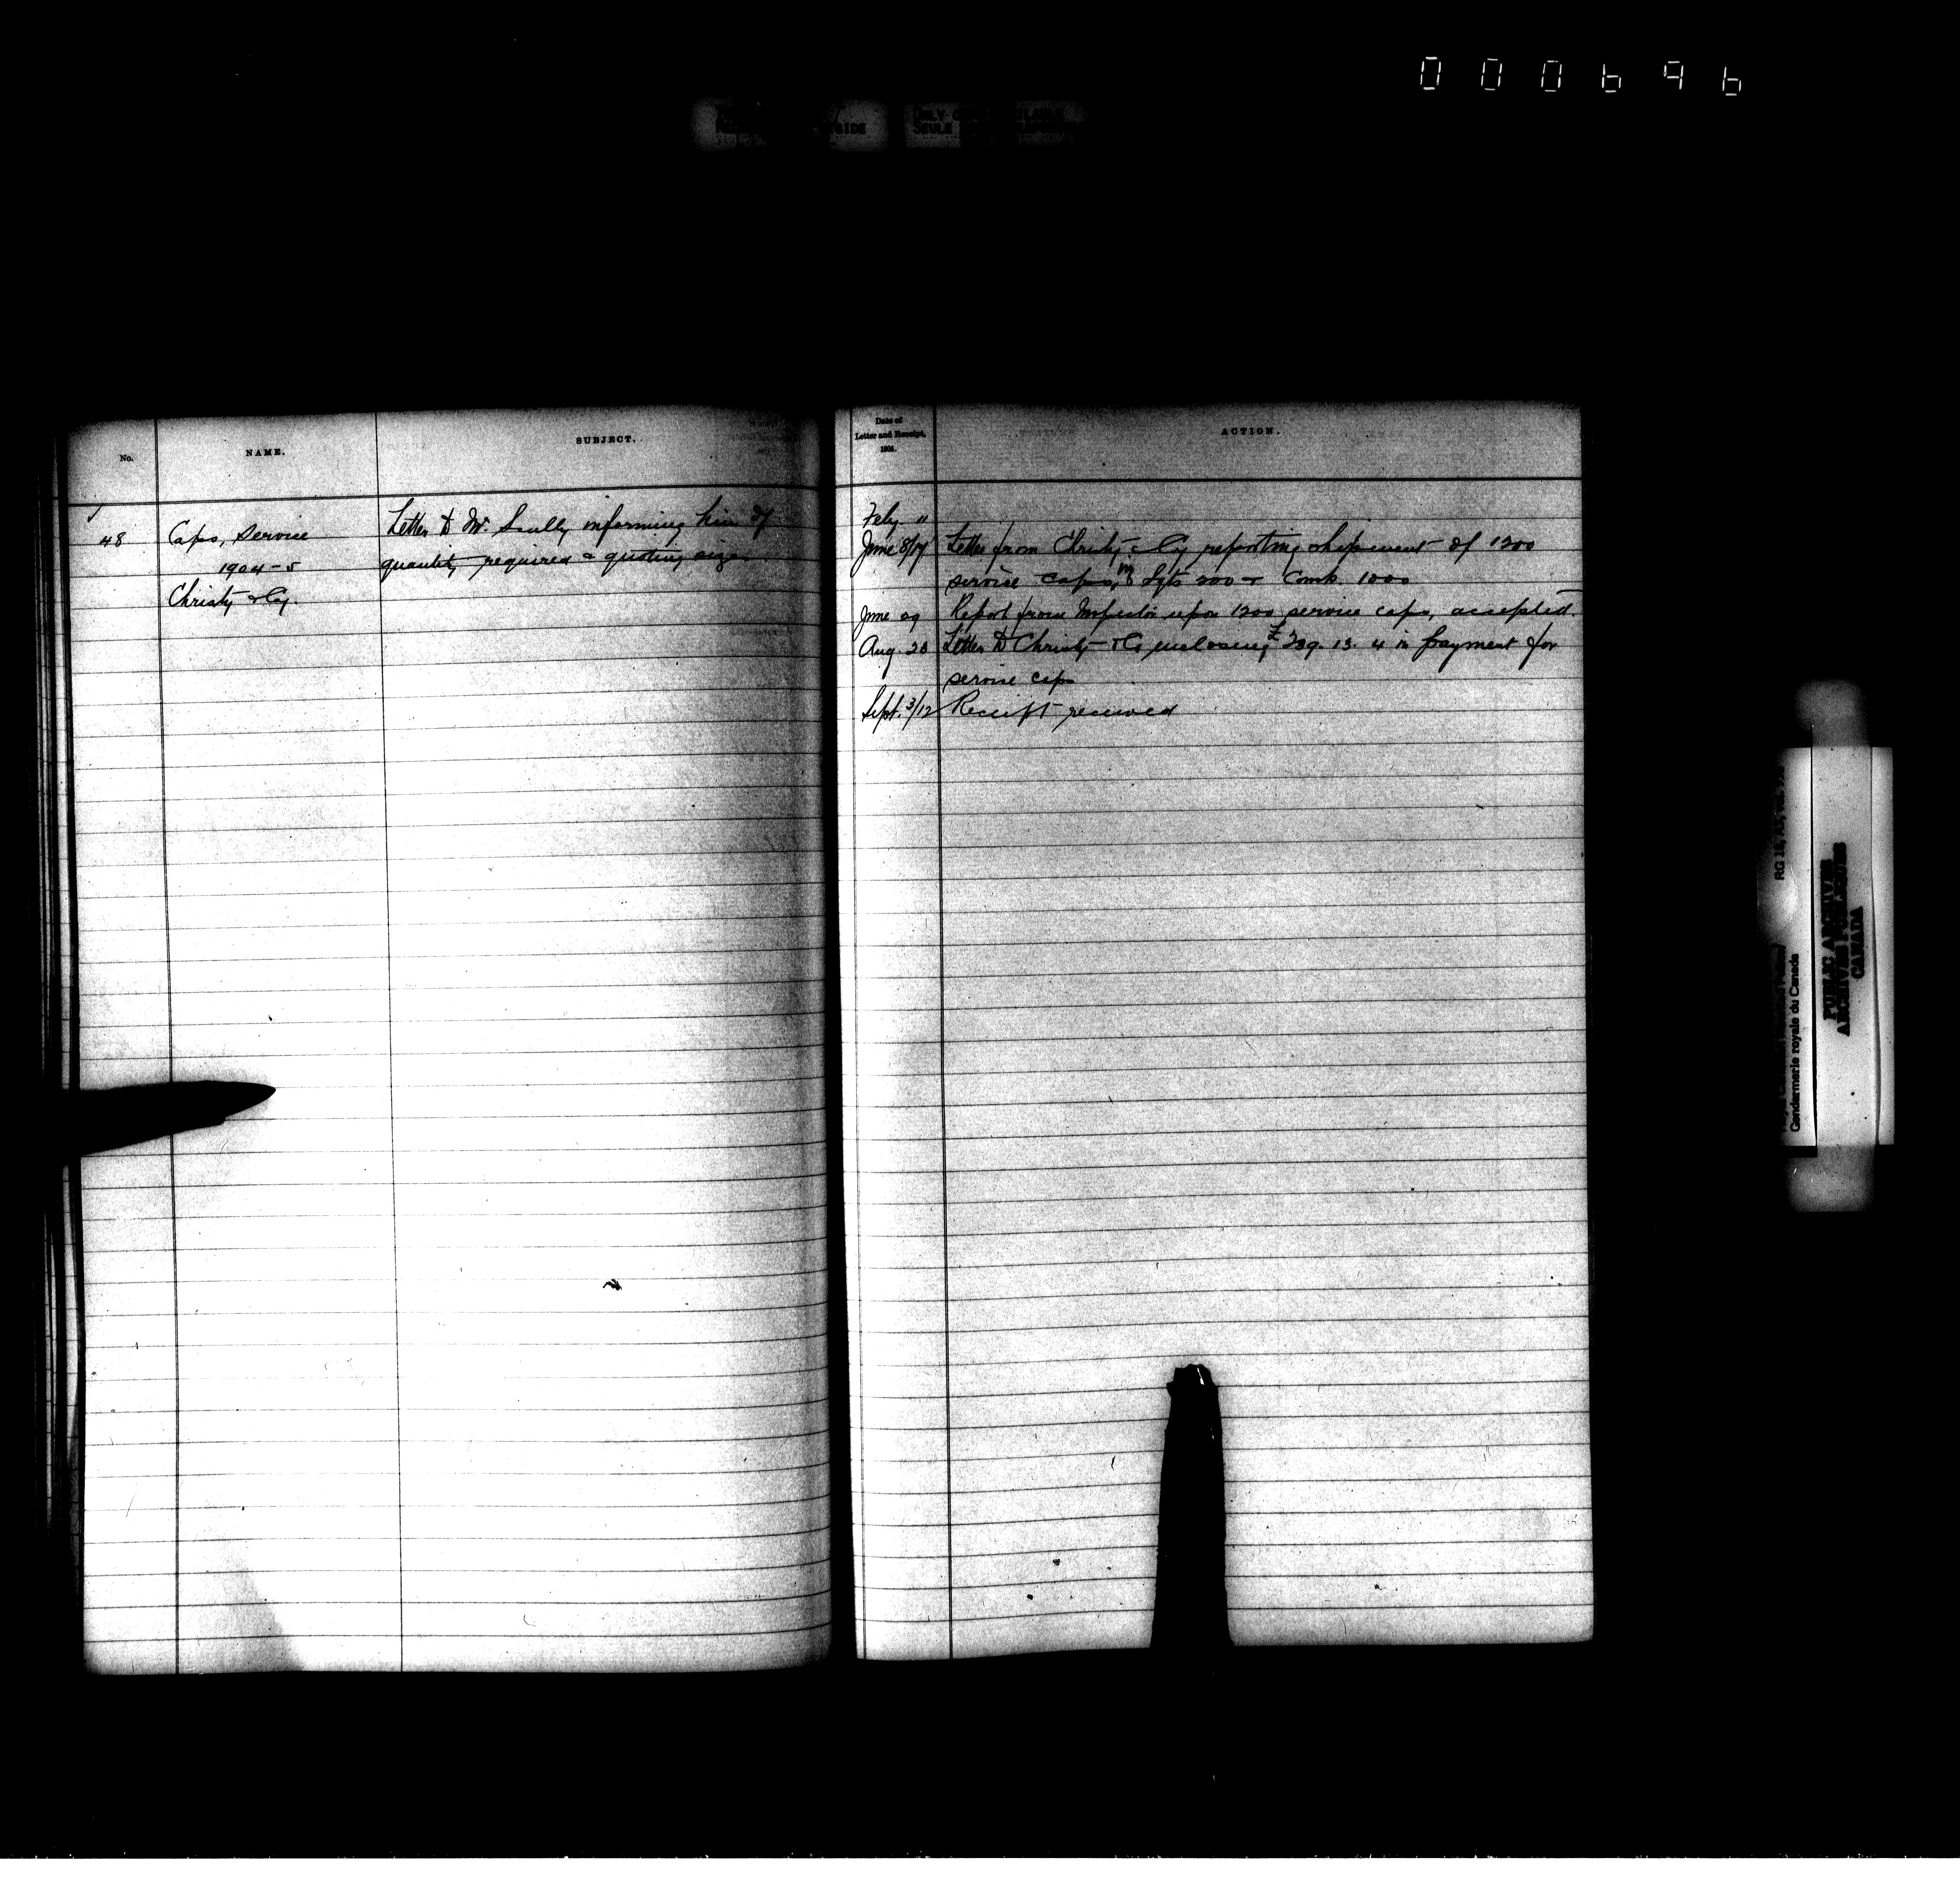 000696
No.
NAME.
SUBJECT.
48
Caps, Service
1904-5
Christy & Cy.
Letter to Mr. Scully informing him of
quantity required & quoting sizes
Date of
Letter and Receipt,
1904.
ACTION.
Feby 11
June 8/17 Letter from Christy & Cy reporting shipment of 1200
service caps, Sgts 200 & Comb. 1000
June 29 Report from Inspector upon 1200 service caps, accepted.
Aug. 20 Letter to Christy & Co enclosing £ 239. 13. 4 in payment for
service caps
Sept. 3/12 Receipt received
RG 18,
Gendarmerie royale du Canada
PUBLIC ARCHIVES
ARCHIVES PUBLIQUES
CANADA